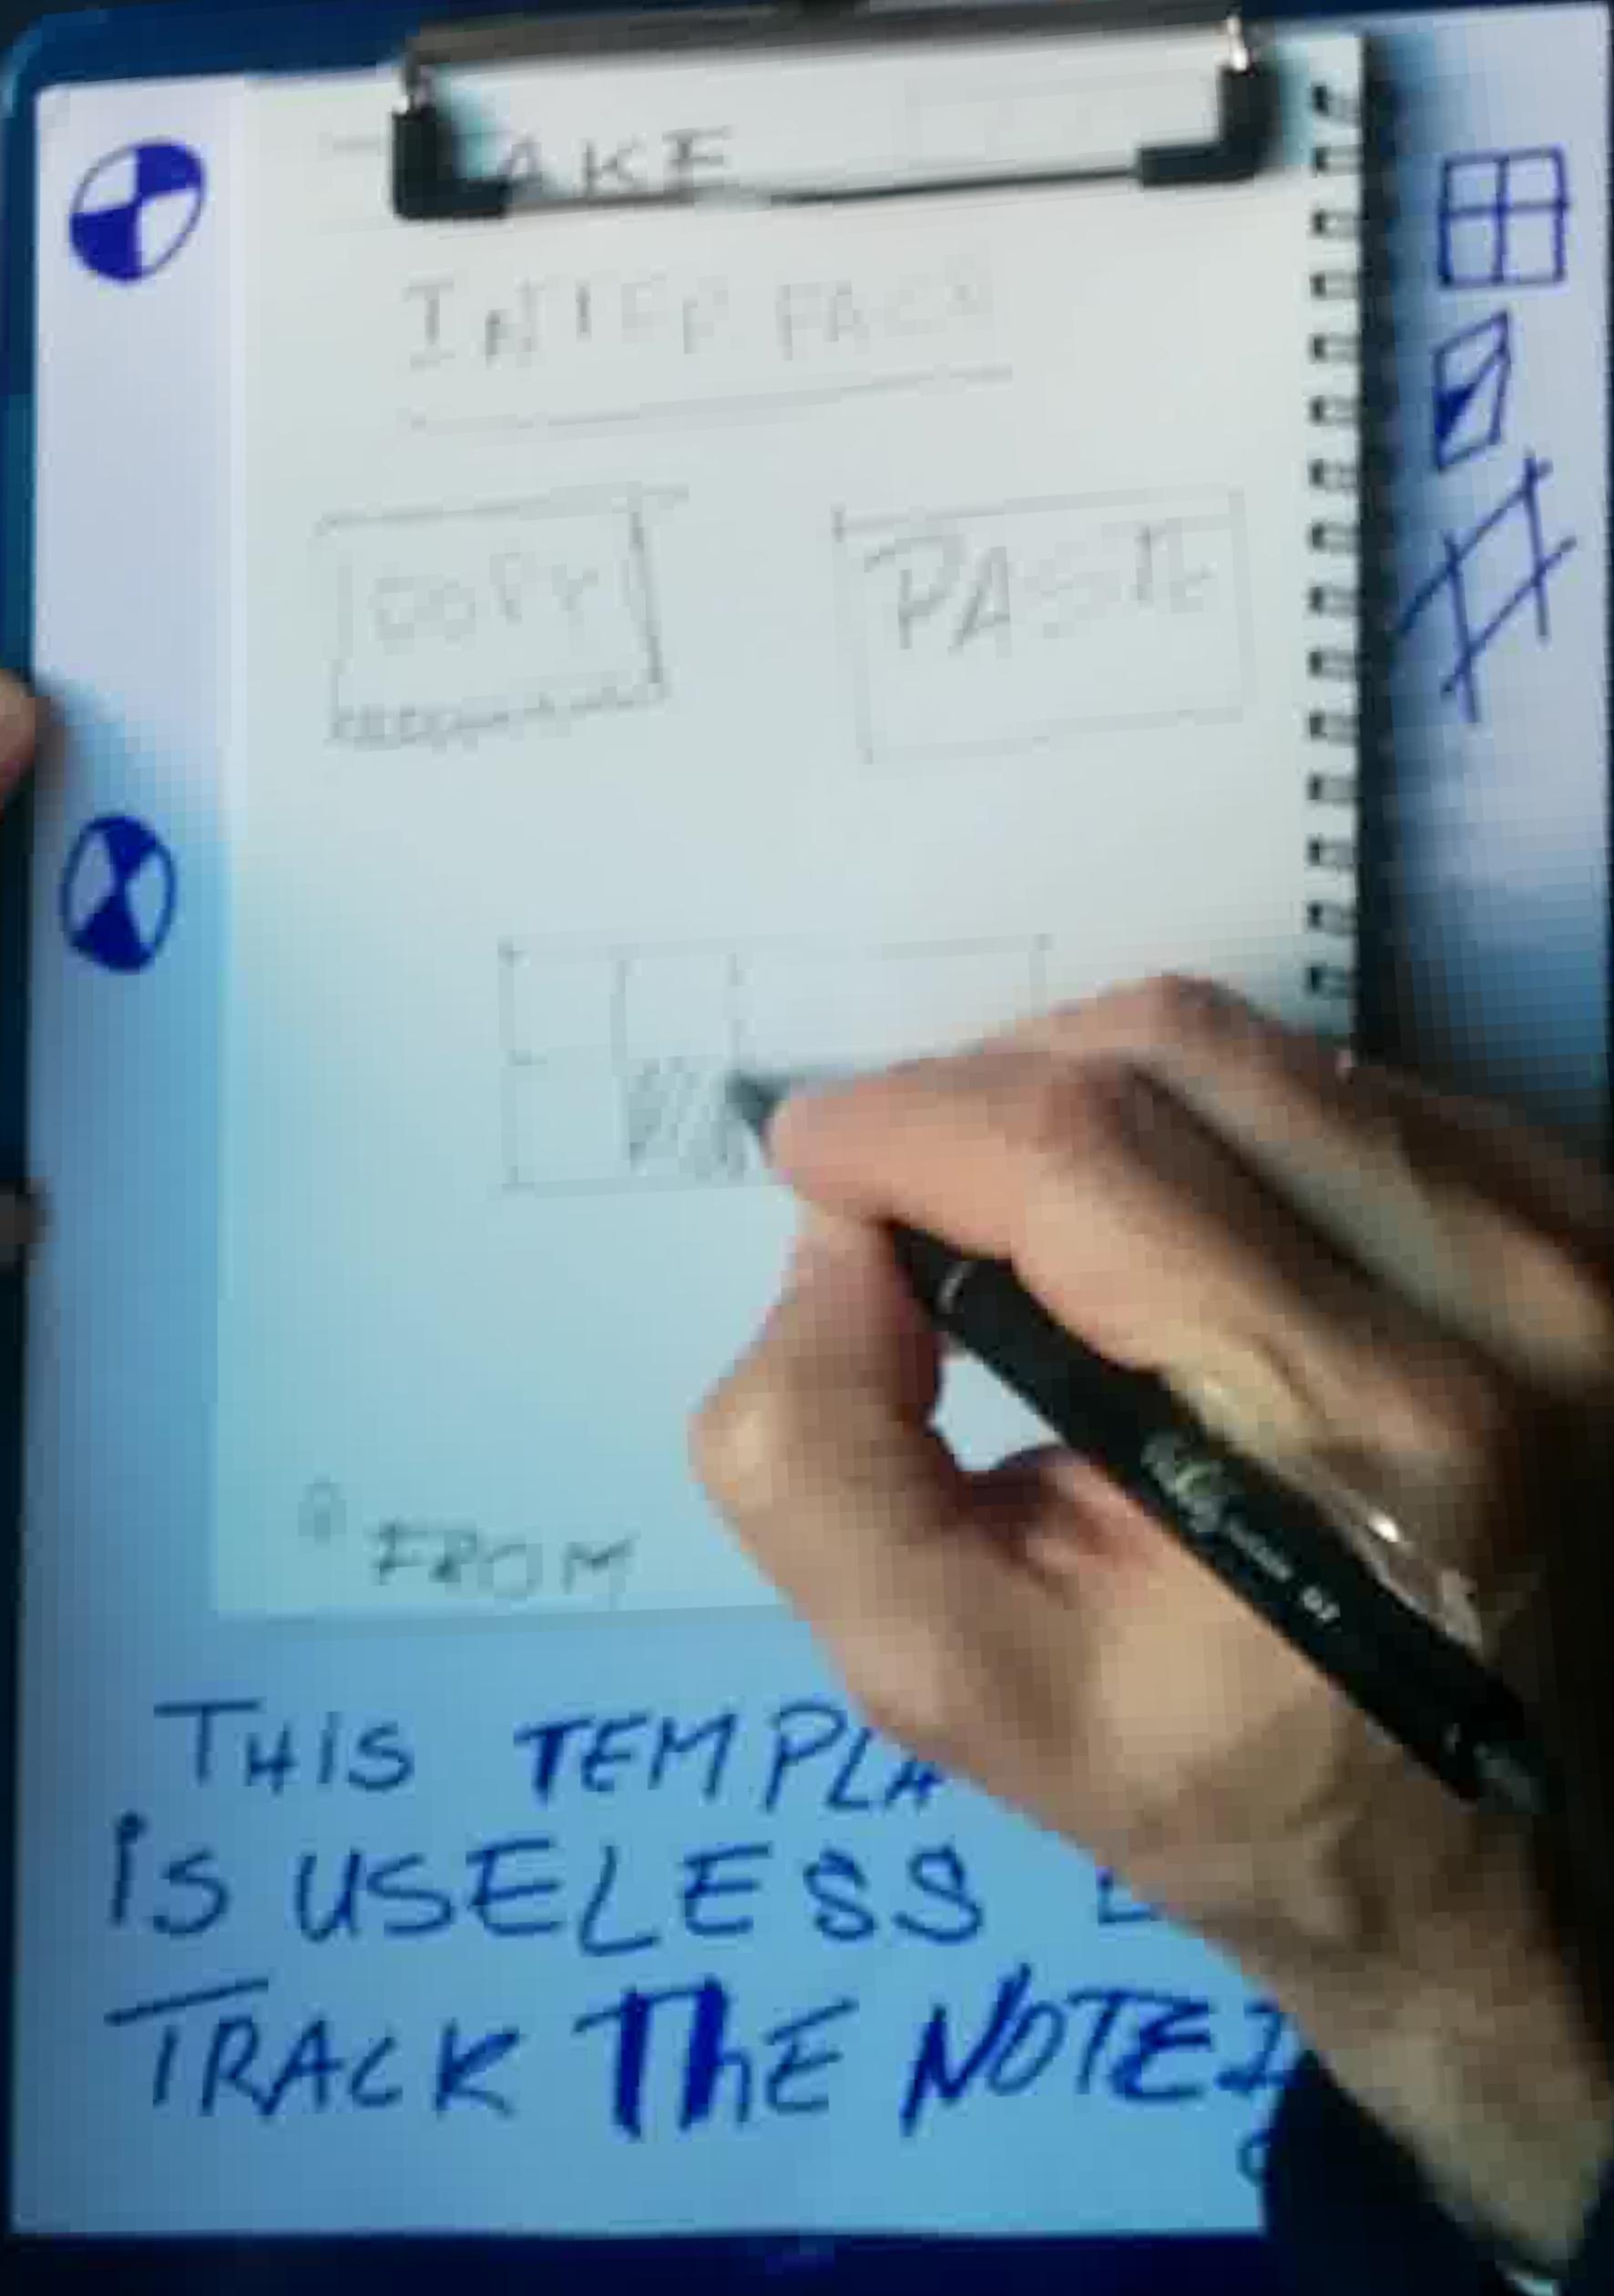 AKE
INTERFACE
COPY PASTE
FROM
THiS TEMPLA
iS USELESS
TRACK ThE NOTE